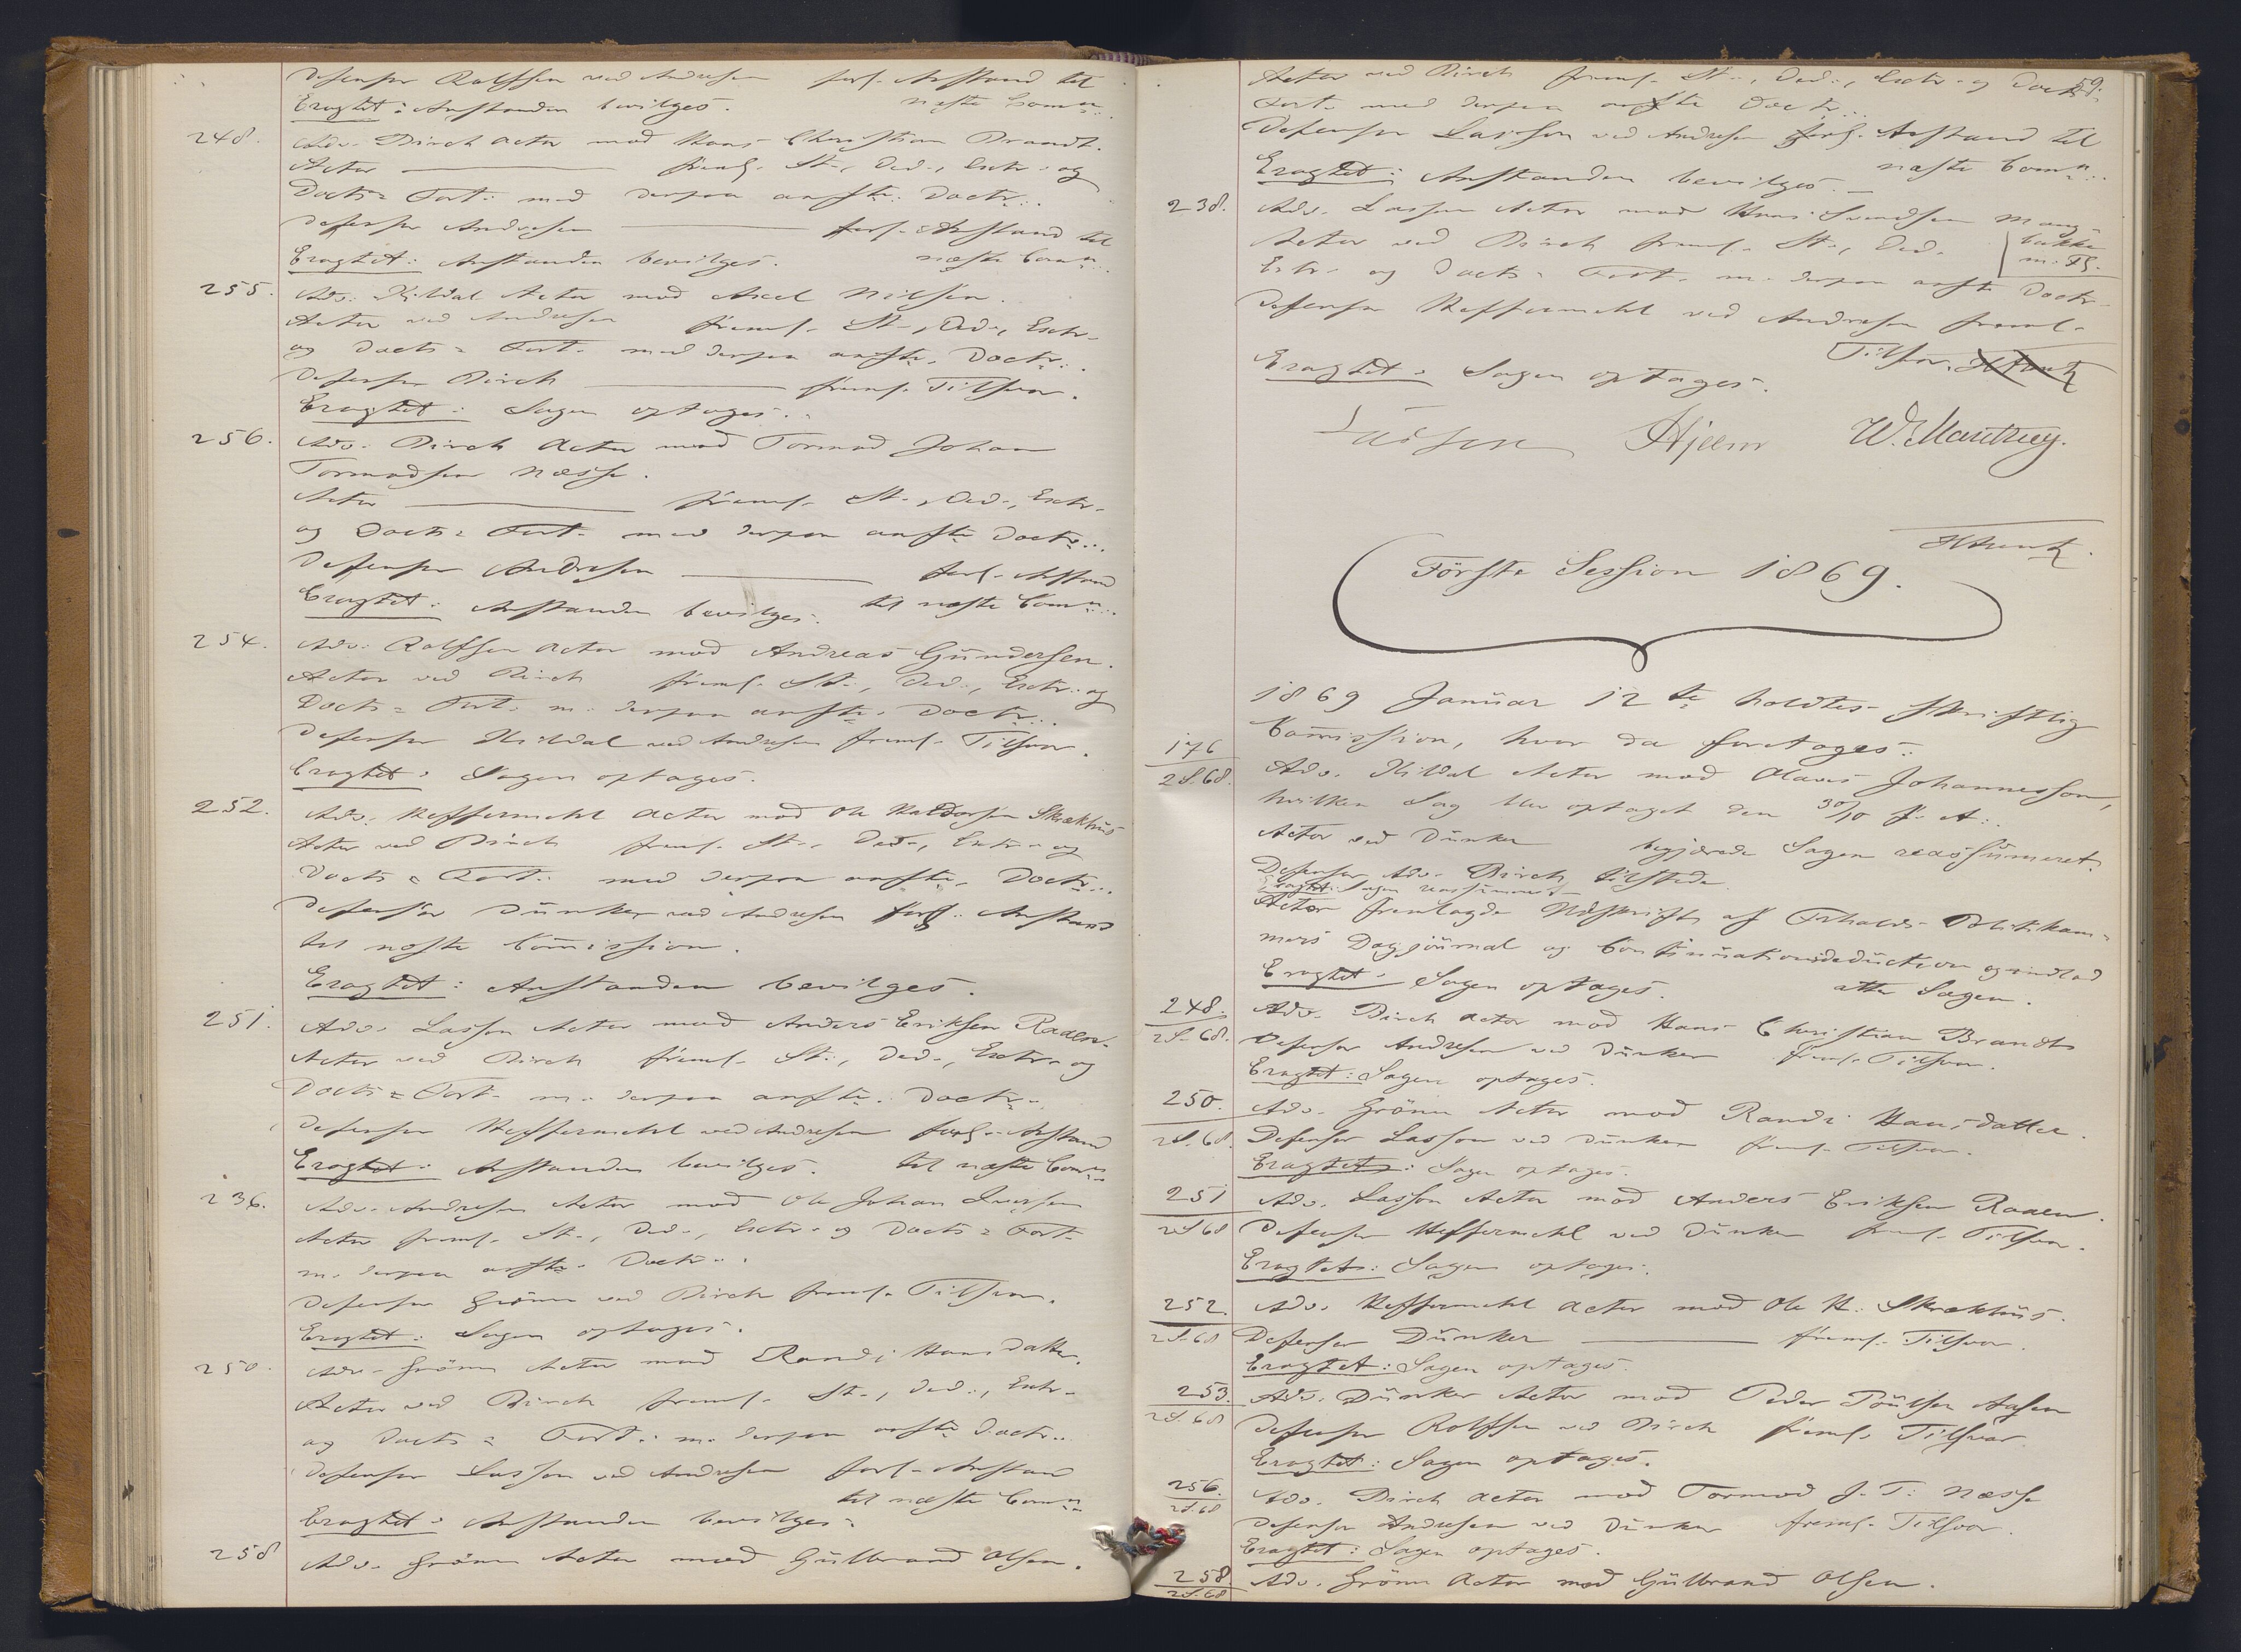 Defensor Rolffsen ved Andresen forl. Anstand til
Eragtet: Anstanden bevilges. næste Comn..
248. Adv. Birch Actor mod Hans Christian Brandt.
Actor — freml. St., Ded., Extr. og
Docts = Fort. med derpaa anfte. Doctr..
Defensor Andresen — forl. Anstand til
Eragtet: Anstanden bevilges. næste Comn..
255. Adv. Kildal Actor mod Axel Nilsen.
Actor ved Andresen freml. St., Ded., Extr.
og Docts = Fort. med derpaa anfte. Doctr..
Defensor Birch — freml. Tilsvar.
Eragtet: Sagen optages.
256. Adv. Birch Actor mod Tormod Johan
Tormodsen Næsse.
Actor — freml. St., Ded., Extr.
og Docts = Fort. med derpaa anfte Doctr..
Defensor Andresen — forl. Anstand
Eragtet: Anstanden bevilges. til næste Comn..
254. Adv. Rolffsen Actor mod Andreas Gündersen.
Actor ved Birch freml. St., Ded., Extr. og
Docts = Fort. m. derpaa anfte. Doctr..
Defensor Kildal ved Andresen freml. Tilsvar.
Eragtet: Sagen optages.
252. Adv. Heffermehl Actor mod Ole Haldorsen Skrækhüs
Actor ved Birch freml. St., Ded., Extr. og
Docts = Fort. med derpaa anfte. Doctr..
Defensor Dünker ved Andresen forl. Anstand
til næste Com̄ission.
Eragtet: Anstanden bevilges.
251. Adv. Lasson Actor mod Anders Eriksen Raaen.
Actor ved Birch freml. St., Ded., Extr. og
Docts = Fort. m. derpaa anfte. Doctr.
Defensor Heffermehl ved Andresen forl. Anstand
Eragtet: Anstanden bevilges. til næste Comn.
236. Adv. Andresen Actor mod Ole Johan Iversen
Actor freml. St., Ded., Extr. og Docts = Fort.
m. derpaa anfte. Doctr..
Defensor Grönn ved Birch freml. Tilsvar.
Eragtet: Sagen optages.
250. Adv. Grönn Actor mod Randi Hansdatter.
Actor ved Birch freml. St., Ded., Extr.
og Docts = Fort. m. derpaa anfte Doctr..
Defensor Lasson ved Andresen forl. Anstand
til næste Comn.
Eragtet: Anstanden bevilges.
258 Adv. Grönn Actor mod Gülbrand Olsen.
59.
Actor ved Birch freml. St., Ded., Extr. og Docts
Fort. med derpaa anfte Doctr...
Defensor Lasson ved Andresen forl. Anstand til
Eragtet: Anstanden bevilges. næste Comn..
238. Adv. Lasson Actor mod Hans Svendsen Mang-
bakke
m. Fl.
Actor ved Birch freml. St., Ded.
Extr. og Docts = Fort. m. derpaa anfte Doctr.
Defensor Heffermehl ved Andresen freml.
Tilsvar.
Eragtet: Sagen optages.
Lasson Hjelm W. Manthey.
Förste Session 1869.
1869 Januar 12te holdtes skriftlig
Com̄ission, hvor da foretoges:
176
2S.68. Adv. Kildal Actor mod Olaves Johannesson,
hvilken Sag blev optaget den 30/10 f. A.
Actor ved Dünker begjærede Sagen reassümeret.
Defensor Adv. Birch tilstede.
Eragtet: Sagen reassümeres
Actor fremlagde Udskrift af Trhalds Politikam-
mers Dagjoürnal og Continüationsdedüction og indlod
atter Sagen.
Eragtet: Sagen optages.
248.
2S.68. Adv. Birch Actor mod Hans Christian Brandt
Defensor Andresen ved Dünker freml. Tilsvar.
Eragtet: Sagen optages.
250.
2S.68. Adv. Grönn Actor mod Randi Hansdatter.
Defensor Lasson ved Dünker freml. Tilsvar.
Eragtet: Sagen optages.
251
2S68 Adv. Lasson Actor mod Anders Eriksen Raaen.
Defensor Heffermehl ved Dünker freml. Tilsvar.
Eragtet: Sagen optages.
252.
2S.68 Adv. Heffermehl Actor mod Ole H. Skrækhüs.
Defensor Dünker — freml. Tilsvar.
Eragtet: Sagen optages.
253.
2S.68 Adv. Dünker Actor mod Peder Poülsen Aasen
Defensor Rolffsen ved Birch freml. Tilsvar.
Eragtet: Sagen optages.
256.
2S.68 Adv. Birch Actor mod Tormod J. T. Næsse
Defensor Andresen ved Dünker freml. Tilsvar.
Eragtet: Sagen optages.
258
2S.68 Adv. Grönn Actor mod Gülbrand Olsen.